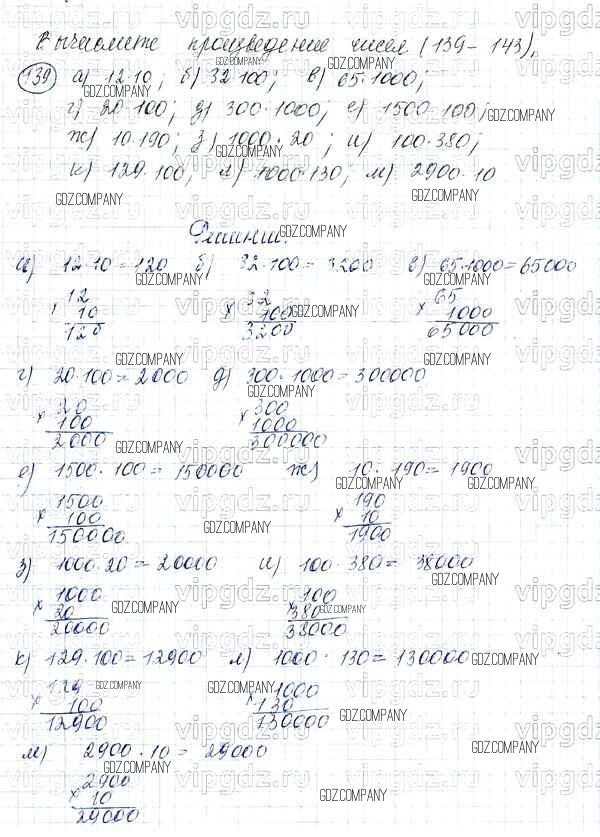 Вычислите произведение чисел (139 - 143).
139 а) 12·10; б) 32·100; в) 65·1000;
г) 20·100; д) 300·1000; е) 1500·100;
ж) 10·190; з) 1000·20; и) 100·380;
к) 129·100; л) 1000·130; м) 2900·10
Решение.
а) 12·10=120 б) 32·100=3200 в) 65·1000=65000
12 32 65
× 10 × 100 × 1000
120 3200 65000
г) 20·100=2000 д) 300·1000=300000
20 300
× 100 × 1000
2000 300000
е) 1500·100=150000 ж) 10·190=1900
1500 190
× 100 × 10
150000 1900
з) 1000·20=20000 и) 100·380=38000
1000 100
× 20 × 380
20000 38000
к) 129·100=12900 л) 1000·130=130000
129 1000
× 100 × 130
12900 130000
м) 2900·10=29000
2900
× 10
29000
vipgdz.ru
GDZ.COMPANY